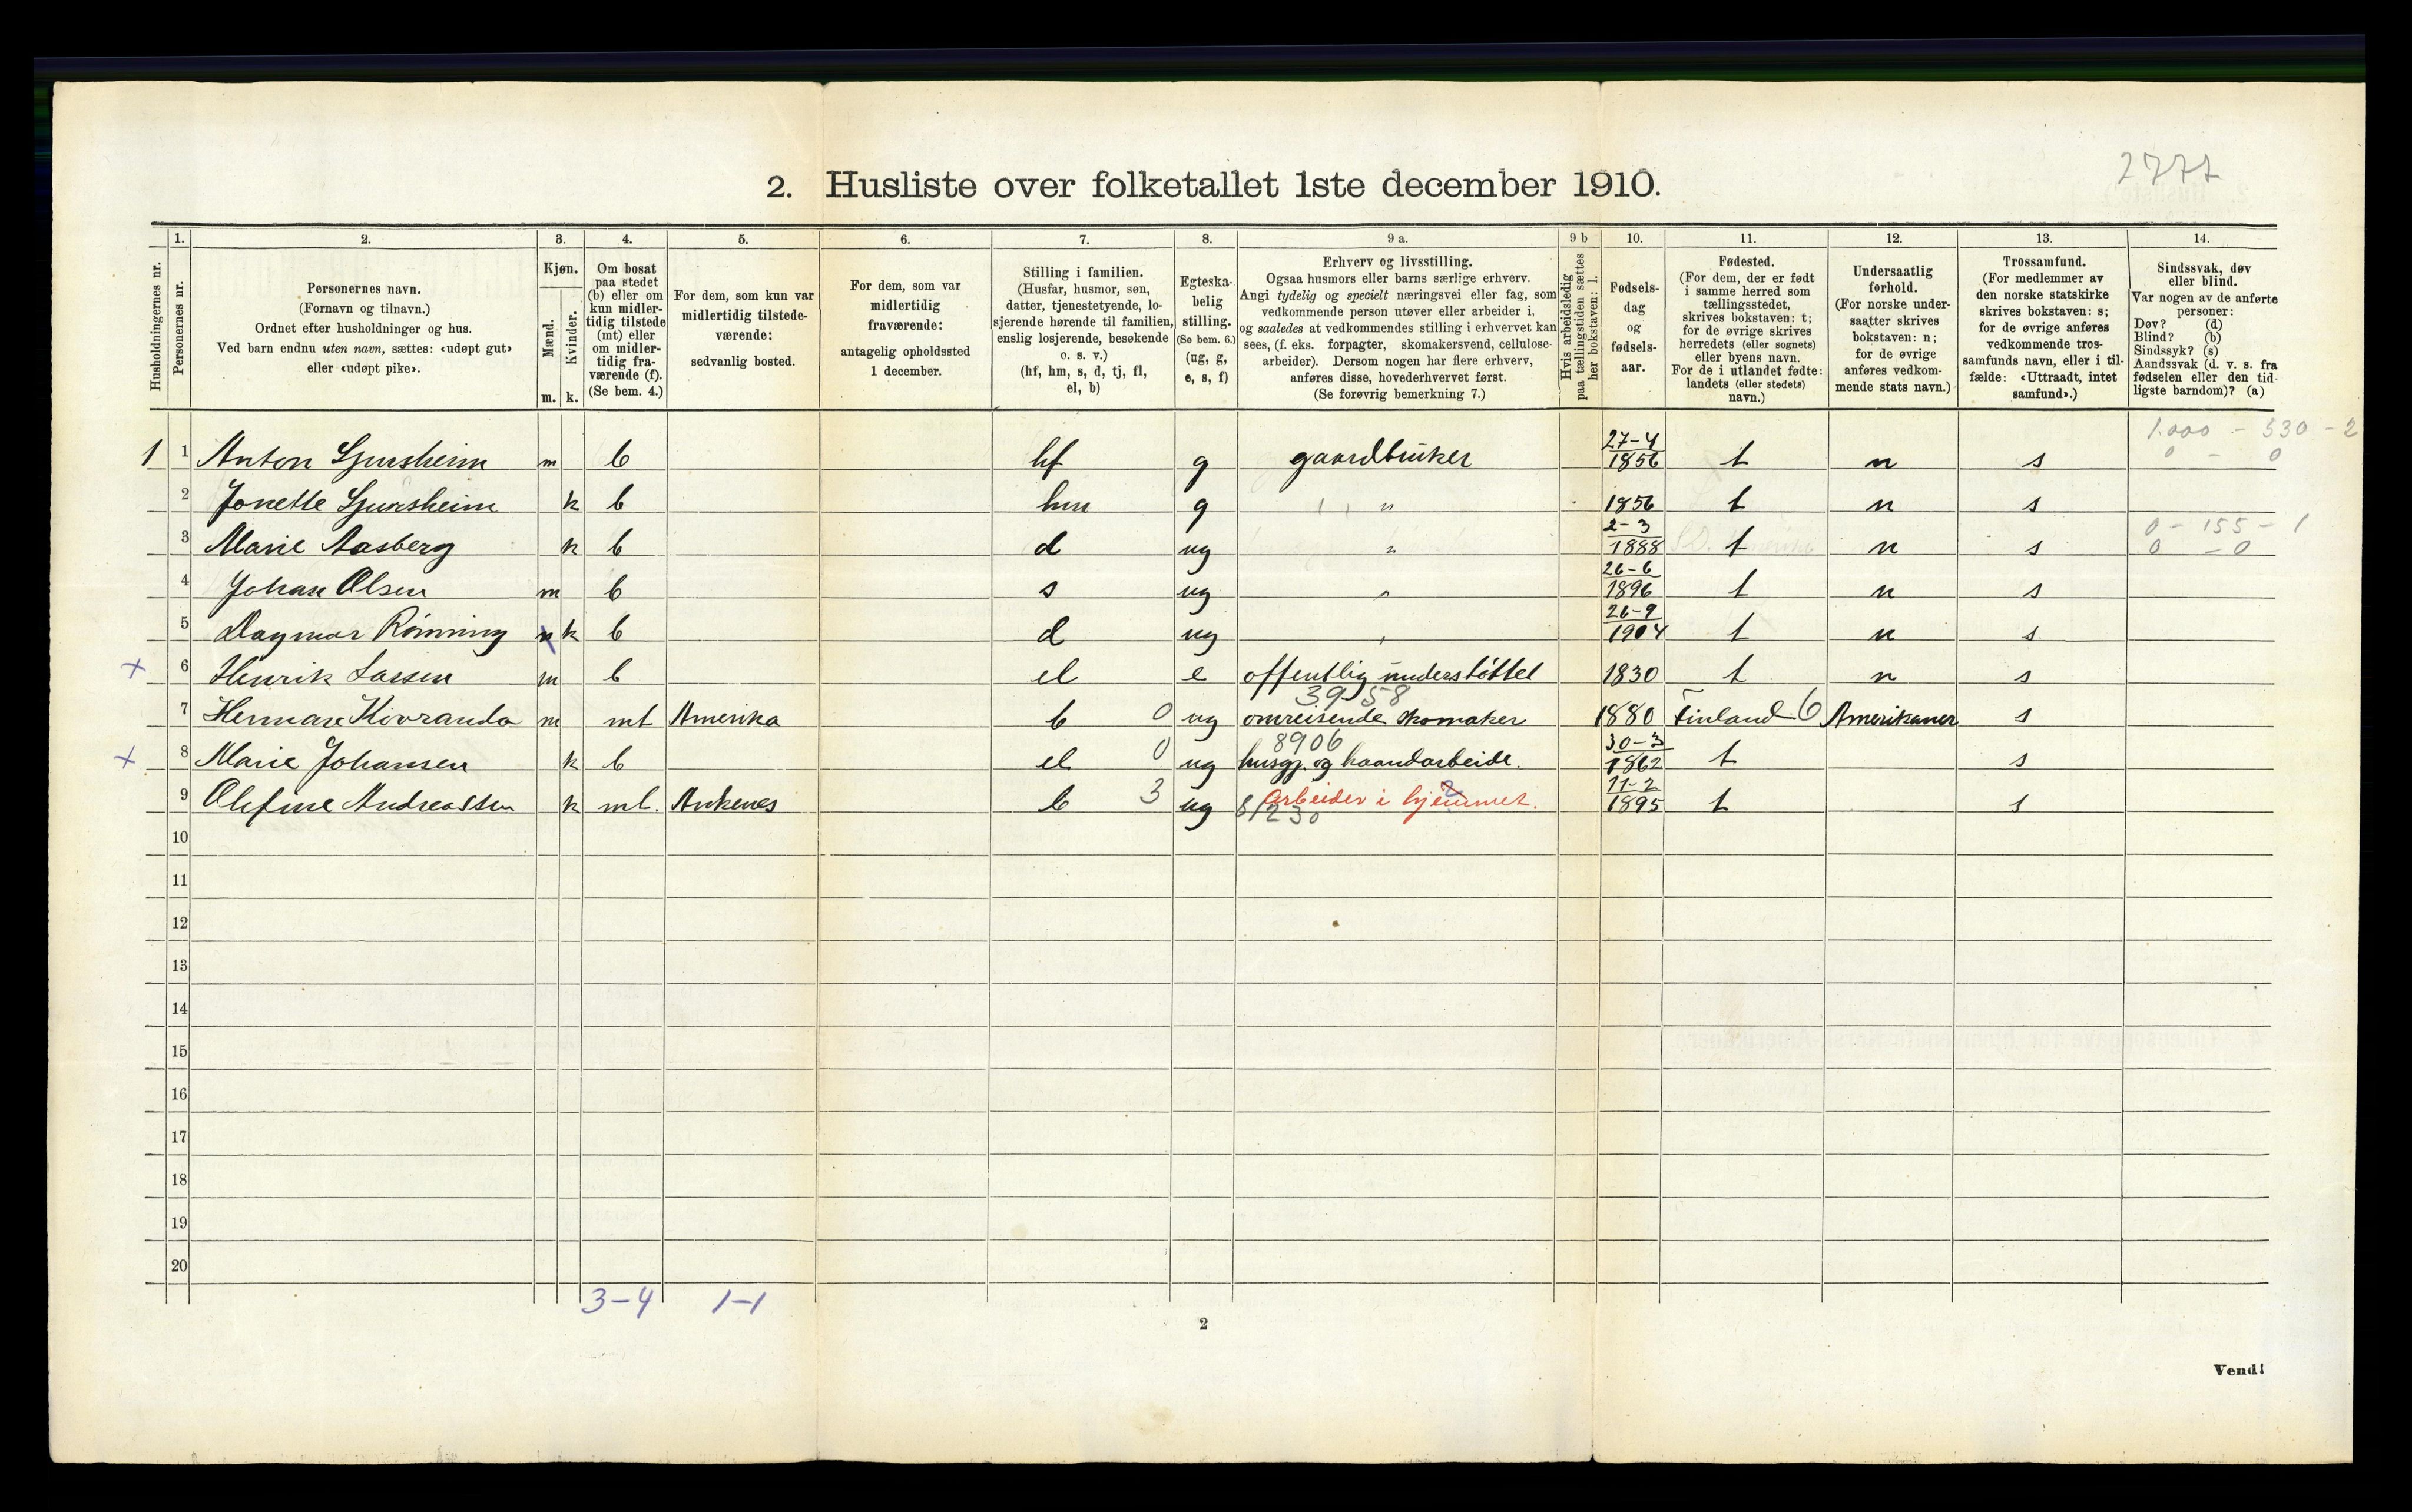 2777
2. Husliste over folketallet 1ste december 1910.
Husholdningernes nr.
1. Personernes nr.
2. Personernes navn.
(Fornavn og tilnavn.)
Ordnet efter husholdninger og hus.
Ved barn endnu uten navn, sættes: «udøpt gut»
eller «udøpt pike».
3. Kjøn.
Mænd. m.
Kvinder. k.
4. Om bosat
paa stedet
(b) eller om
kun midler-
tidig tilstede
(mt) eller
om midler-
tidig fra-
værende (f).
(Se bem. 4.)
5. For dem, som kun var
midlertidig tilstede-
værende:
sedvanlig bosted.
6. For dem, som var
midlertidig
fraværende:
antagelig opholdssted
1 december.
7. Stilling i familien.
(Husfar, husmor, søn,
datter, tjenestetyende, lo-
sjerende hørende til familien,
enslig losjerende, besøkende
o. s. v.)
(hf, hm, s, d, tj, fl,
el, b)
8. Egteska-
belig
stilling.
(Se bem. 6.)
(ug, g,
e, s, f)
9 a. Erhverv og livsstilling.
Ogsaa husmors eller barns særlige erhverv.
Angi tydelig og specielt næringsvei eller fag, som
vedkommende person utøver eller arbeider i,
og saaledes at vedkommendes stilling i erhvervet kan
sees, (f. eks. forpagter, skomakersvend, cellulose-
arbeider). Dersom nogen har flere erhverv,
anføres disse, hovederhvervet først.
(Se forøvrig bemerkning 7.)
9 b Hvis arbeidsledig
paa tællingstiden sættes
her bokstaven: l.
10. Fødsels-
dag
og
fødsels-
aar.
11. Fødested.
(For dem, der er født
i samme herred som
tællingsstedet,
skrives bokstaven: t;
for de øvrige skrives
herredets (eller sognets)
eller byens navn.
For de i utlandet fødte:
landets (eller stedets)
navn.)
12. Undersaatlig
forhold.
(For norske under-
saatter skrives
bokstaven: n;
for de øvrige
anføres vedkom-
mende stats navn.)
13. Trossamfund.
(For medlemmer av
den norske statskirke
skrives bokstaven: s;
for de øvrige anføres
vedkommende tros-
samfunds navn, eller i til-
fælde: «Uttraadt, intet
samfund».)
14. Sindssvak, døv
eller blind.
Var nogen av de anførte
personer:
Døv? (d)
Blind? (b)
Sindssyk? (s)
Aandssvak (d. v. s. fra
fødselen eller den tid-
ligste barndom)? (a)
1.000 - 530 - 2
0 - 0
1 1 Anton Sjursheim m b hf g gaardbruker 27-4 1856 t n s
2 Jonette Sjursheim k b hm g " 1856 t n s
0 - 155 - 1
0 - 0
3 Marie Aasberg k b d ug " 2-3 1888 t n s
4 Johan Olsen m b s ug " 26-6 1896 t n s
5 Dagmar Rønning k b d ug " 26-9 1904 t n s
x 6 Henrik Lassen m b el e offentlig understøttet 1830 t n s
3958
7 Herman Kivranda m mt Amerika b 0 ug omreisende skomaker 1880 Finland 6 Amerikaner s
8906
x 8 Marie Johansen k b el 0 ug husgj. og haandarbeide. 30-3 1862 t s
9 Olefine Andreassen k mt. Ankenes b 3 ug arbeider i hjemmet. 11-2 1895 t s
2
10
11
12
13
14
15
16
17
18
19
20
3-4 1-1
2
Vend!